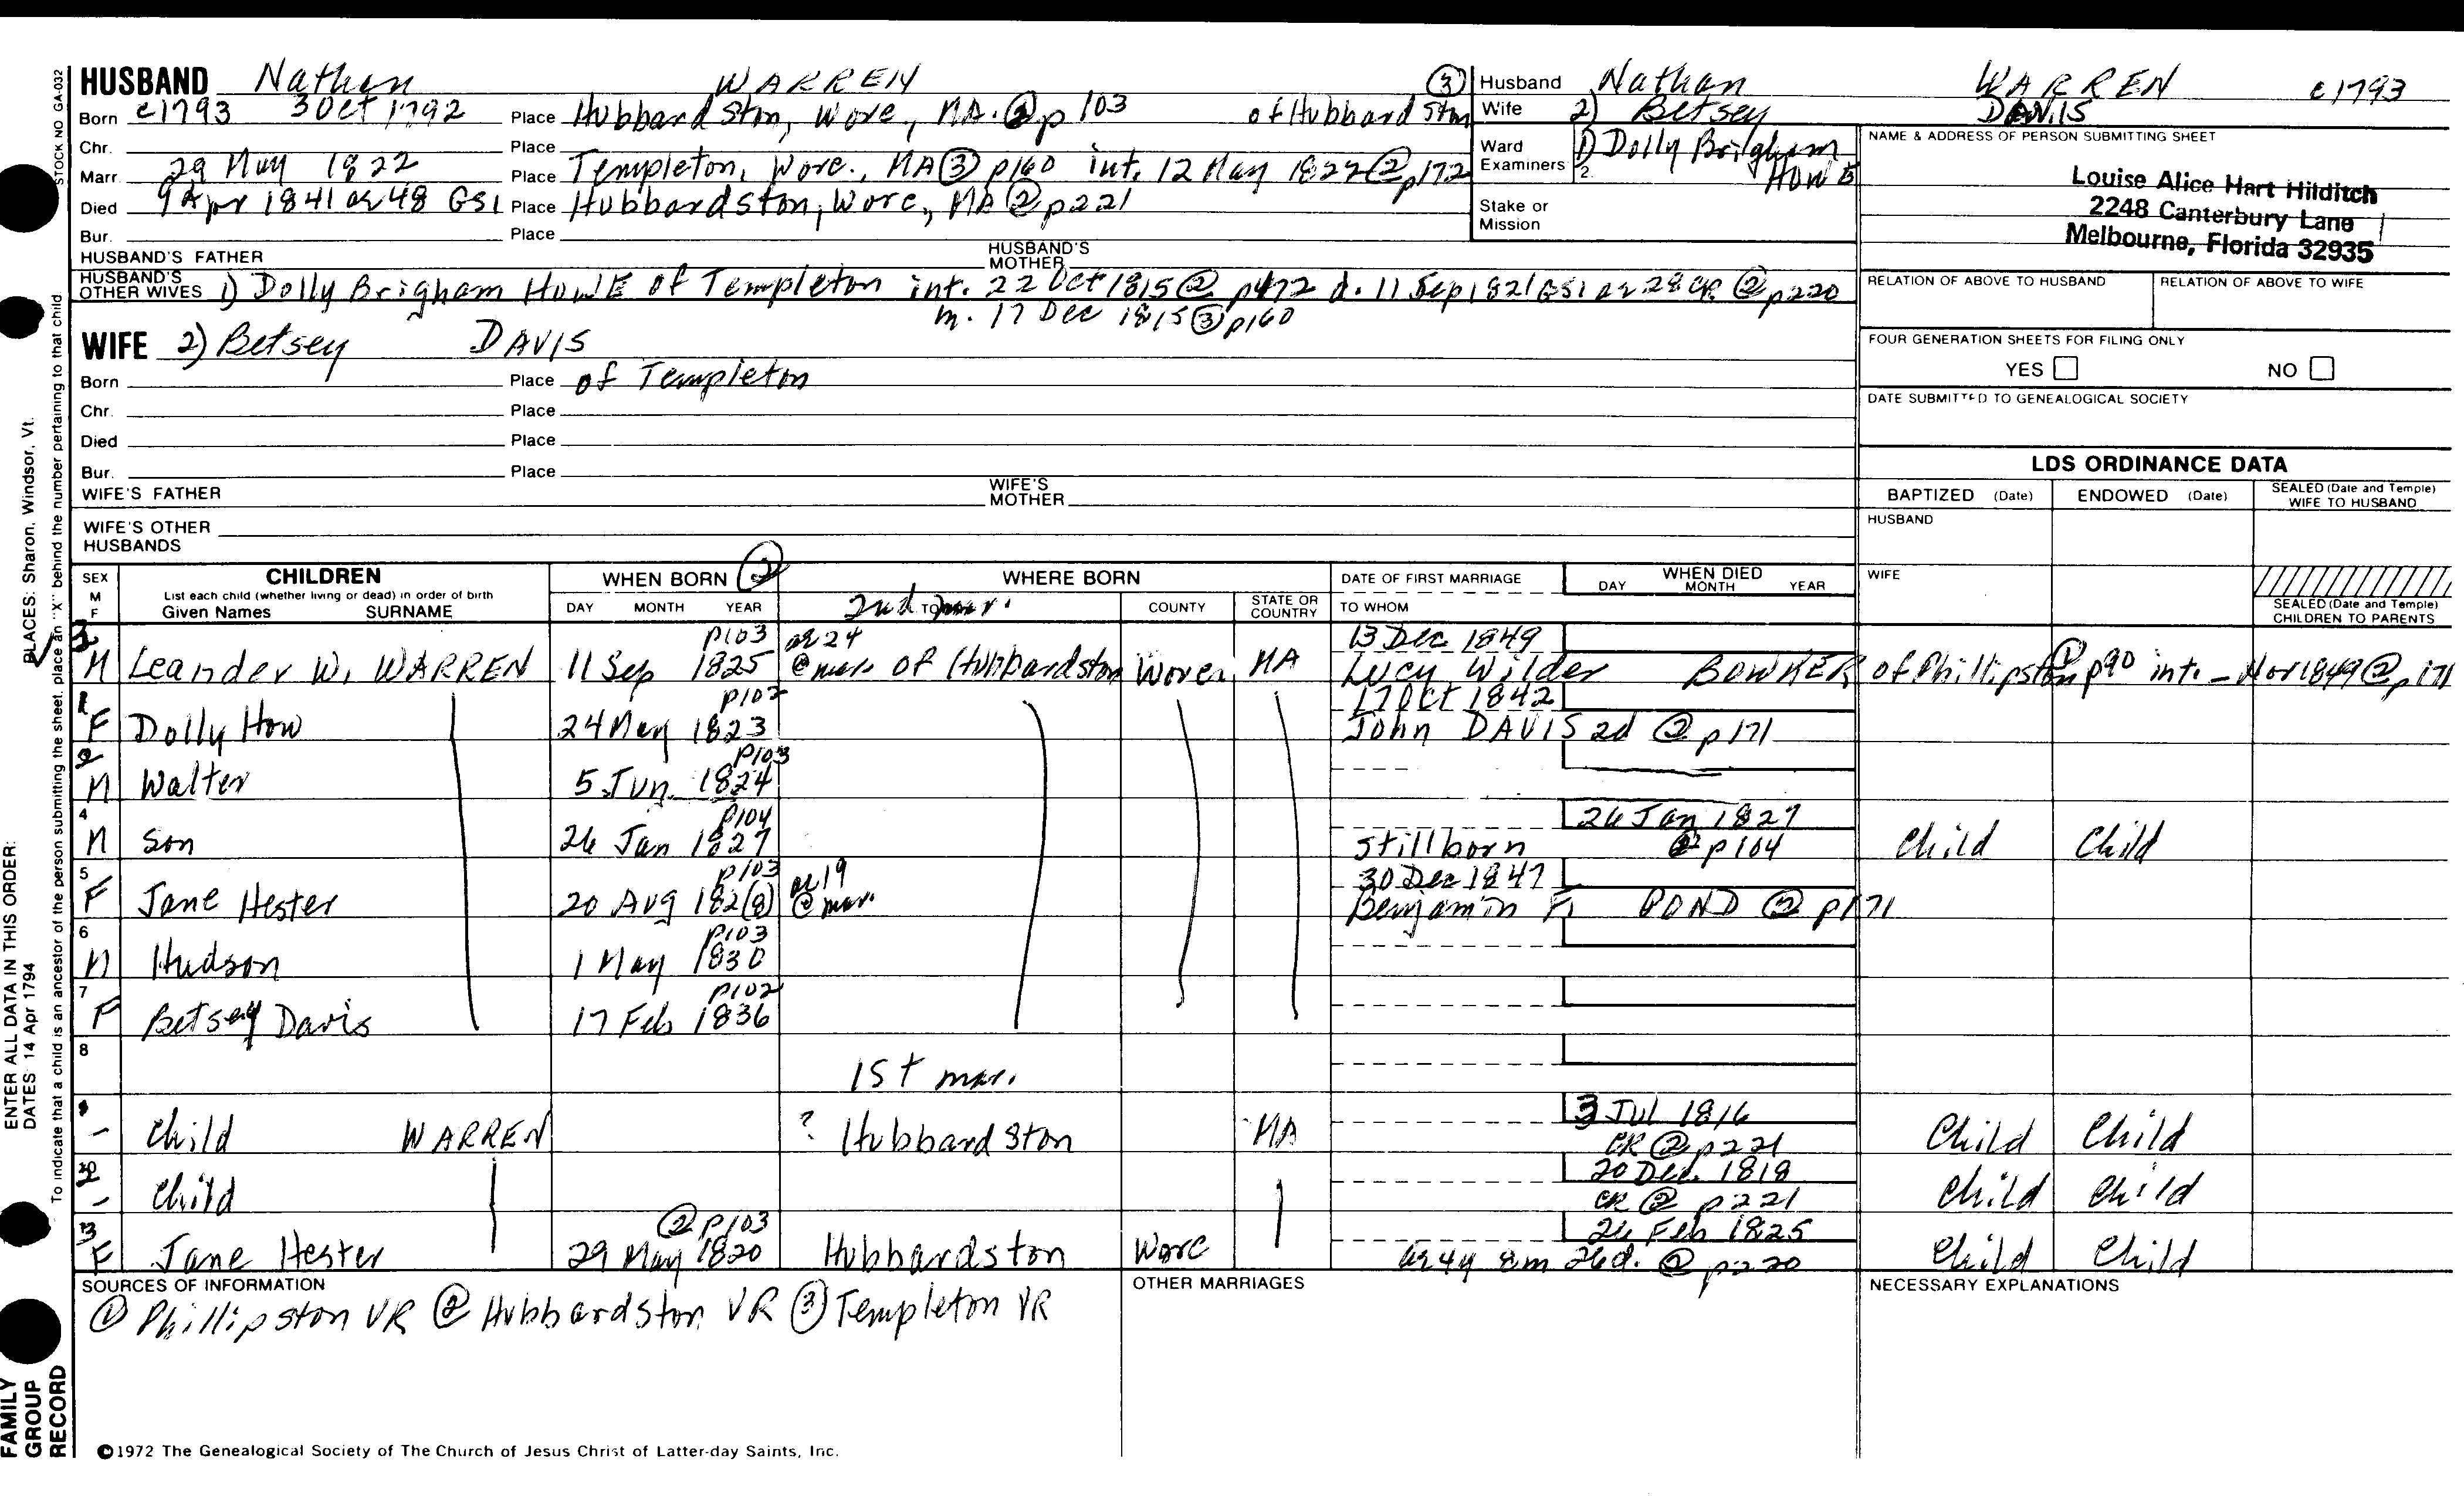 HUSBAND Nathan WARREN
Born c1793 3 Oct 1792 Place Hubbardston, Worc, MA. ② p 103 of Hubbardston
Chr. Place
Marr. 29 May 1822 Place Templeton, Worc., MA ③ p160 int. 12 May 1822 ② p172
Died 9 Apr 1841 ae 48 GS1 Place Hubbardston, Worc, MA ② p221
Bur. Place
HUSBAND'S FATHER HUSBAND'S MOTHER
HUSBAND'S OTHER WIVES 1) Dolly Brigham HOWE of Templeton int. 22 Oct 1815 ② p172 d. 11 Sep 1821 GS1 ae 28 CR ② p220
m. 17 Dec 1815 ③ p160
③ Husband Nathan WARREN c1793
Wife 2) Betsey DAVIS
Ward Examiners 1) Dolly Brigham HOWE
2.
Stake or Mission
NAME & ADDRESS OF PERSON SUBMITTING SHEET
Louise Alice Hart Hilditch
2248 Canterbury Lane
Melbourne, Florida 32935
RELATION OF ABOVE TO HUSBAND RELATION OF ABOVE TO WIFE
FOUR GENERATION SHEETS FOR FILING ONLY
YES NO
DATE SUBMITTED TO GENEALOGICAL SOCIETY
WIFE 2) Betsey DAVIS
Born Place of Templeton
Chr. Place
Died Place
Bur. Place
WIFE'S FATHER WIFE'S MOTHER
WIFE'S OTHER HUSBANDS
LDS ORDINANCE DATA
BAPTIZED (Date) ENDOWED (Date) SEALED (Date and Temple) WIFE TO HUSBAND
HUSBAND
WIFE
SEALED (Date and Temple) CHILDREN TO PARENTS
SEX M F
CHILDREN
List each child (whether living or dead) in order of birth
Given Names SURNAME
WHEN BORN ②
DAY MONTH YEAR
WHERE BORN
2nd mar.
TOWN COUNTY STATE OR COUNTRY
DATE OF FIRST MARRIAGE
TO WHOM
WHEN DIED
DAY MONTH YEAR
3 p103 ae 24 13 Dec 1849
M Leander W. WARREN 11 Sep 1825 @ mar. of Hubbardston Worc. MA Lucy Wilder BOWKER of Phillipston ① p90 int. – Nov 1849 ② p171
1 p102 17 Oct 1842
F Dolly How 24 May 1823 John DAVIS 2d ② p171
2 p103
M Walter 5 Jun. 1824
4 p104 26 Jan 1827
M Son 26 Jan 1827 stillborn ② p104 Child Child
5 p103 ae 19 30 Dec 1847
F Jane Hester 20 Aug 182(8) @ mar. Benjamin F. POND ② p171
6 p103
M Hudson 1 May 1830
7 p102
F Betsey Davis 17 Feb 1836
8
1st mar.
1 3 Jul 1816
– Child WARREN ? Hubbardston MA CR ② p221 Child Child
2 20 Dec. 1818
– Child CR ② p221 Child Child
3 ② p103 26 Feb 1825
F Jane Hester 29 May 1820 Hubbardston Worc ae 4y 8m 26d. ② p220 Child Child
SOURCES OF INFORMATION
① Phillipston VR ② Hubbardston VR ③ Templeton VR
OTHER MARRIAGES
NECESSARY EXPLANATIONS
©1972 The Genealogical Society of The Church of Jesus Christ of Latter-day Saints, Inc.
STOCK NO. GA-032
To indicate that a child is an ancestor of the person submitting the sheet, place an "X" behind the number pertaining to that child
ENTER ALL DATA IN THIS ORDER:
DATES: 14 Apr 1794
PLACES: Sharon, Windsor, Vt.
FAMILY GROUP RECORD